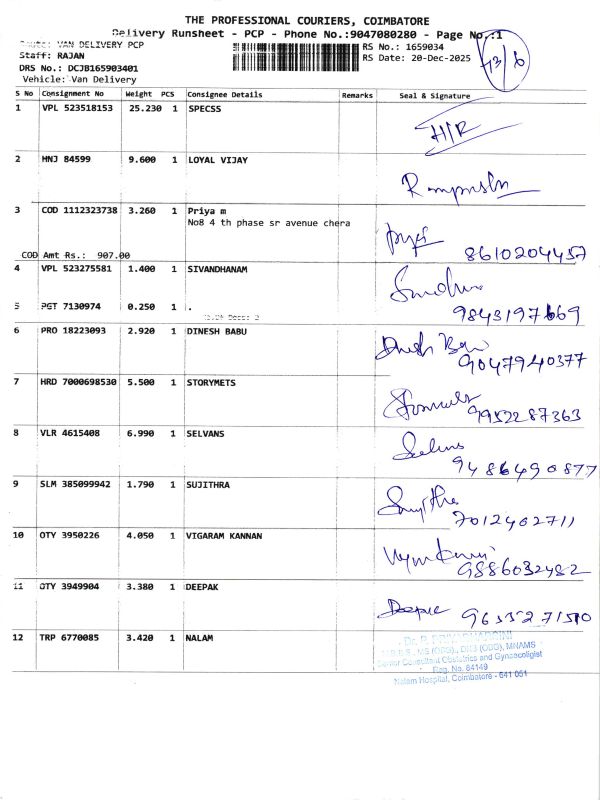 THE PROFESSIONAL COURIERS, COIMBATORE
Delivery Runsheet - PCP - Phone No.:9047080280 - Page No.:1
VAN DELIVERY PCP
RS No.: 1659034
13/6
Staff: RAJAN
RS Date: 20-Dec-2025
DRS No.: DCJB165903401
Vehicle: Van Delivery
S No Consignment No Weight PCS Consignee Details Remarks Seal & Signature
1 VPL 523518153 25.230 1 SPECSS
H/R
2 HNJ 84599 9.600 1 LOYAL VIJAY
3 COD 1112323738 3.260 1 Priya m
No8 4 th phase sr avenue chera
8610204457
COD Amt Rs.: 907.00
4 VPL 523275581 1.400 1 SIVANDHANAM
5 PGT 7130974 0.250 1 .
9843197669
6 PRO 18223093 2.920 1 DINESH BABU
Dinesh Babu
9047940377
7 HRD 7000698530 5.500 1 STORYMETS
9952287363
8 VLR 4615408 6.990 1 SELVANS
Selvans
9486490877
9 SLM 385099942 1.790 1 SUJITHRA
Sujithra
7012402711
10 OTY 3950226 4.050 1 VIGARAM KANNAN
9886032482
11 OTY 3949904 3.380 1 DEEPAK
Deepak
12 TRP 6770085 3.420 1 NALAM
M.B.B.S., MS (OBG)., DNB (OBG), MNAMS
Senior Consultant Obstetrics and Gynaecologist
Reg. No. 84149
Nalam Hospital, Coimbatore - 641 061